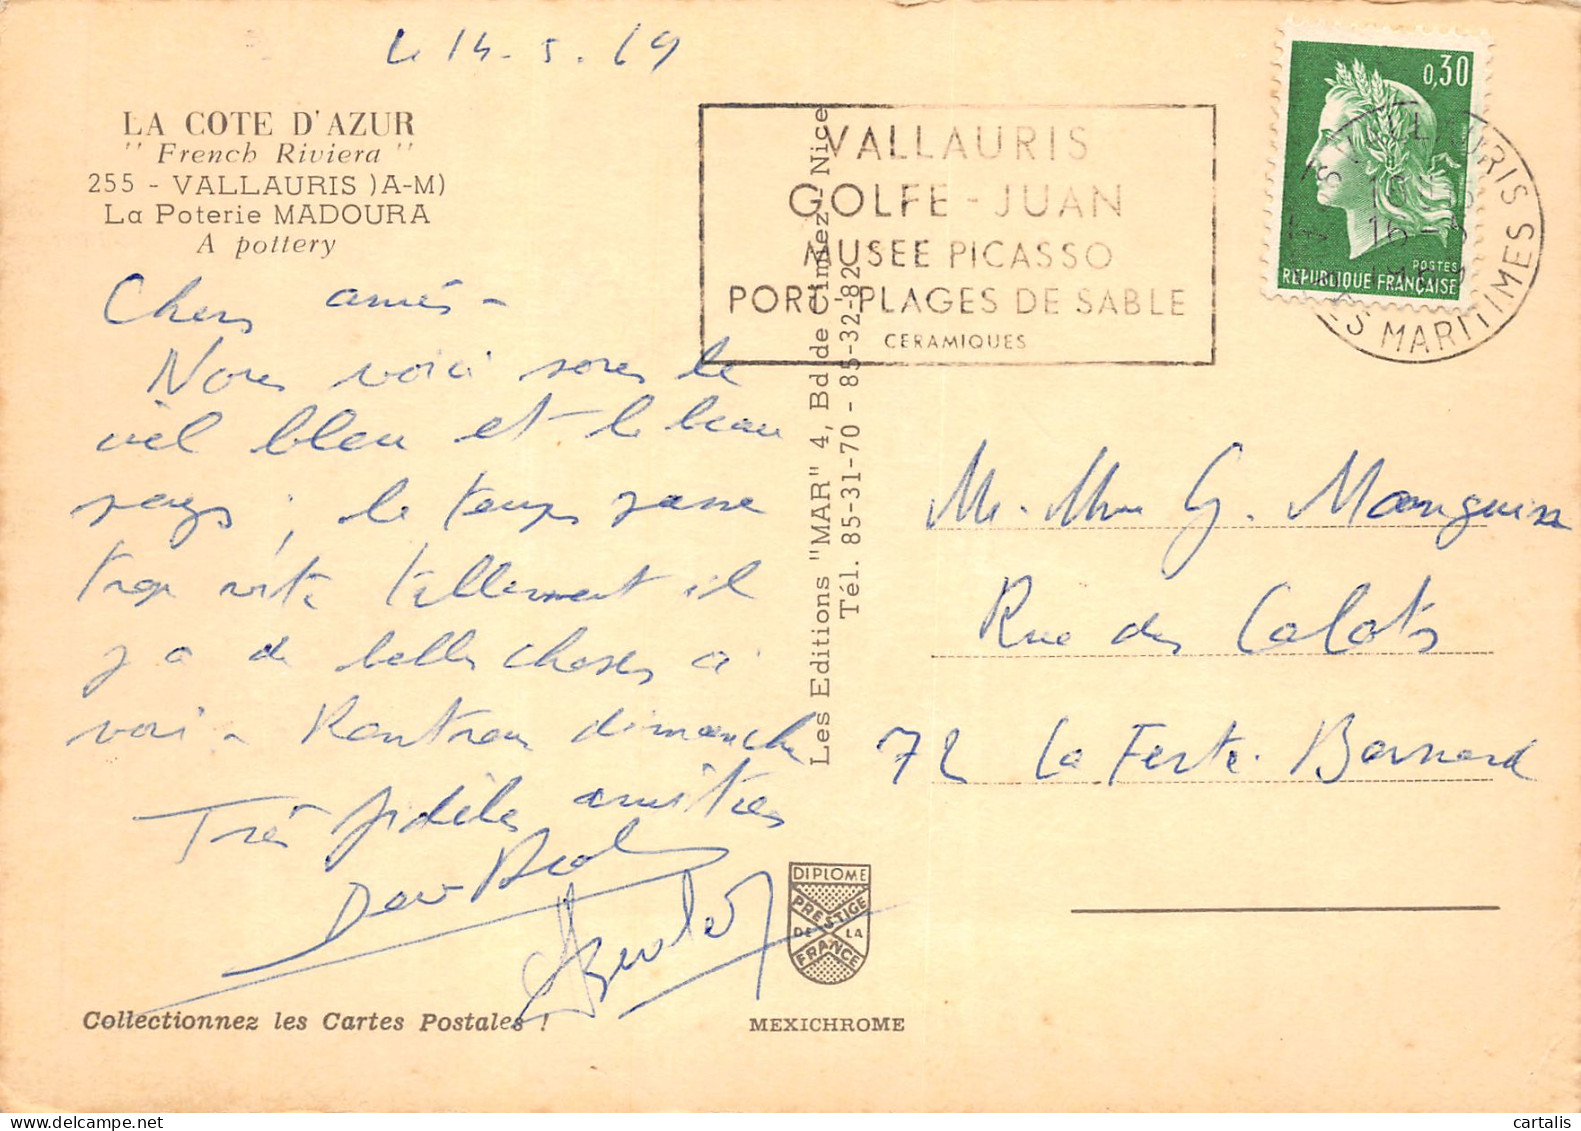 Le 14-5.69
LA COTE D'AZUR
" French Riviera "
255 - VALLAURIS )A-M)
La Poterie MADOURA
A pottery
Chers amis -
Nous voici sous le
ciel bleu et le beau
pays, le temps passe
trop vite tellement il
y a de belles choses à
voir - Rentrons dimanche
Très fidèles amitiés
VALLAURIS
GOLFE - JUAN
MUSEE PICASSO
PORT-PLAGES DE SABLE
CERAMIQUES
0,30
POSTES
REPUBLIQUE FRANÇAISE
VALLAURIS
16-5
MARITIMES
Les Editions "MAR" 4, Bd de Cimiez - Nice
Tél. 85-31-70 - 85-32-82
M. Mme G.
Rue des Calots
72 La Ferté-Bernard
DIPLOME
PRESTIGE
DE LA
FRANCE
Collectionnez les Cartes Postales !
MEXICHROME
cartalis